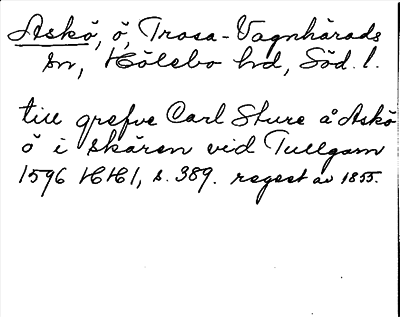 Askö, ö, Trosa-Vagnhärads
sn, Hölebo hd, Söd. l.
till grefve Carl Sture å Askö
ö i skären vid Tullgarn
1596 HH1, s. 389. regest av 1855.